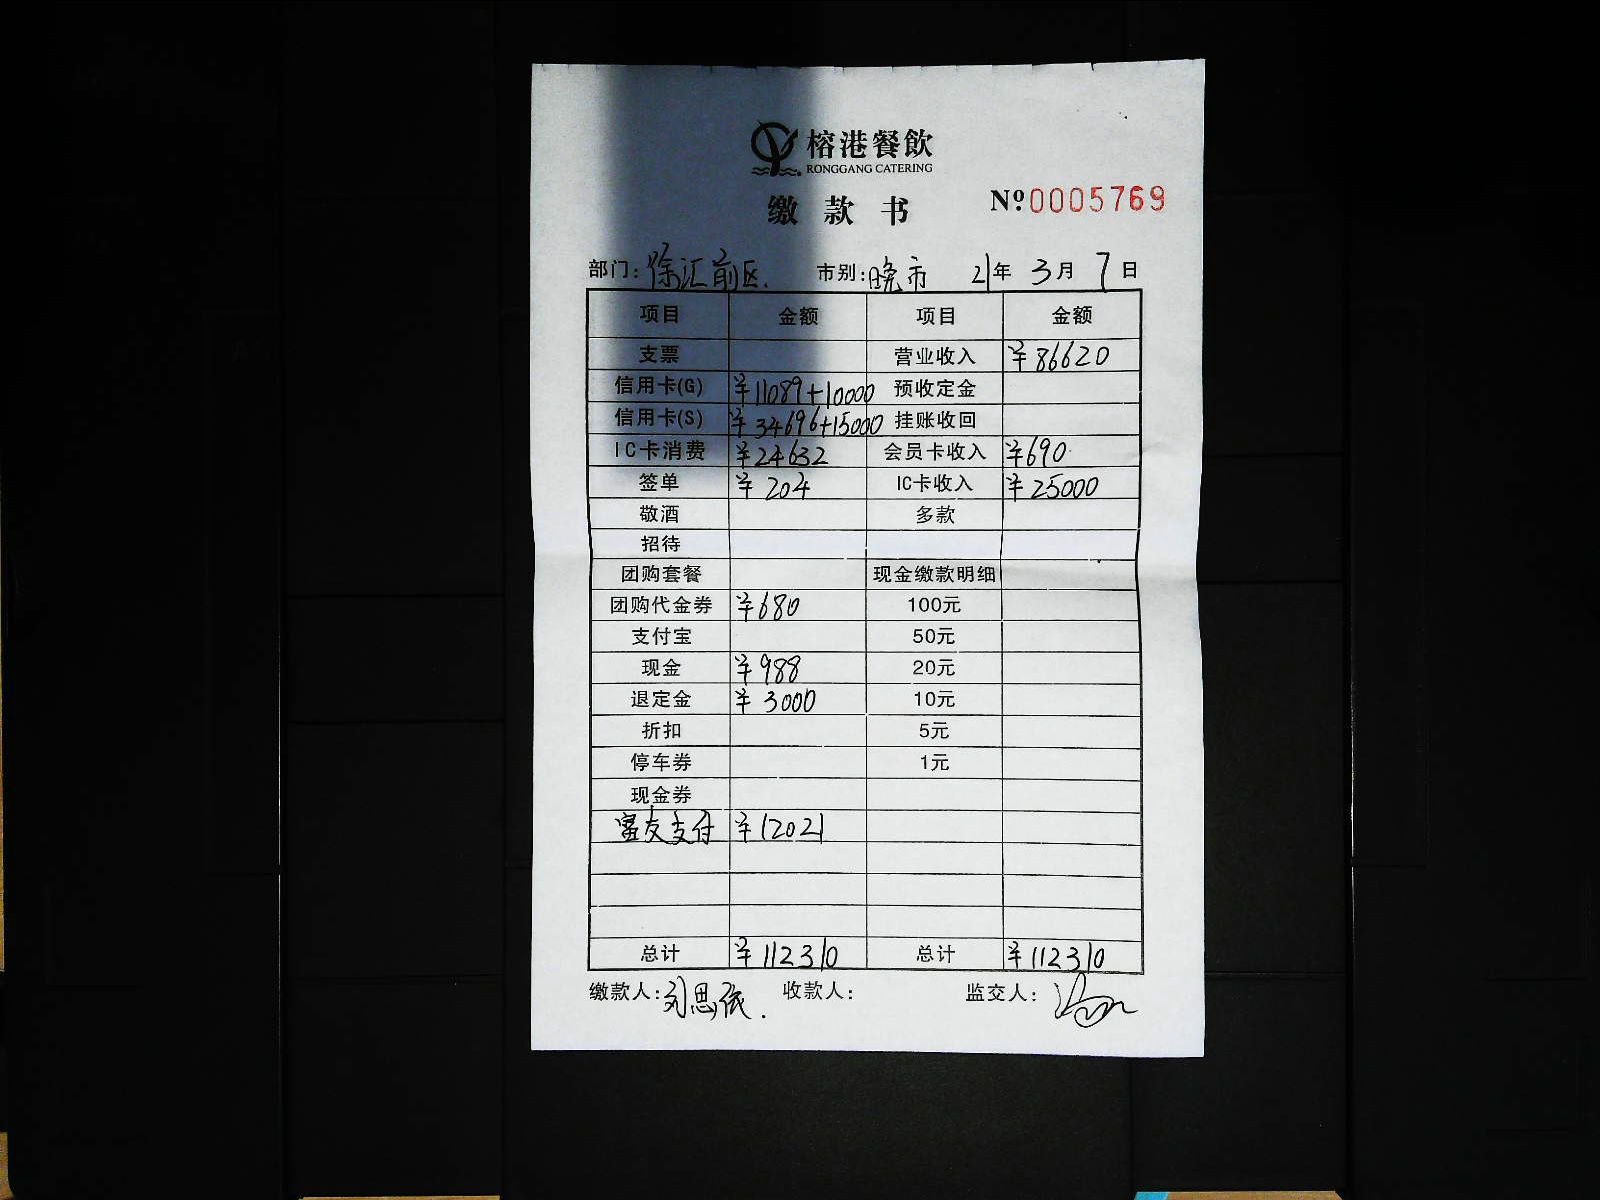 榕港餐飲
RONGGANG CATERING
缴款书 Nº0005769
部门: 徐汇前区. 市别: 晚市 21年 3月 7日
项目 金额 项目 金额
支票 营业收入 ¥86620
信用卡(G) ¥11089+10000 预收定金
信用卡(S) ¥34696+15000 挂账收回
IC卡消费 ¥24632 会员卡收入 ¥690
签单 ¥204 IC卡收入 ¥25000
敬酒 多款
招待
团购套餐 现金缴款明细
团购代金券 ¥680 100元
支付宝 50元
现金 ¥988 20元
退定金 ¥3000 10元
折扣 5元
停车券 1元
现金券
友支付 ¥12021
总计 ¥112310 总计 ¥112310
缴款人: 刘思 . 收款人: 监交人: